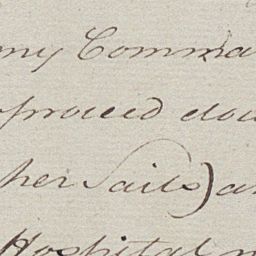 my Comma
proceed dow
her Sails) a
Hospital